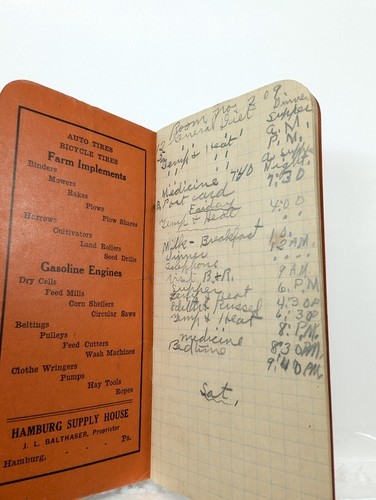 AUTO TIRES
BICYCLE TIRES
Farm Implements
Binders
Mowers
Rakes
Plows
Plow Shares
Harrows
Cultivators
Land Rollers
Seed Drills
Gasoline Engines
Dry Cells
Feed Mills
Corn Shellers
Circular Saws
Beltings
Pulleys
Feed Cutters
Wash Machines
Clothe Wringers
Pumps
Hay Tools
Ropes
HAMBURG SUPPLY HOUSE
J. L. BALTHASER, Proprietor
Hamburg, - - - Pa.
Room No. 209.
General Diet Dinner
Supper
Temp & Heat A.M.
" " " P.M.
Supper
Medicine Night.
Post card 7:30
Friday
Temp & Heat 4:00
Milk - Breakfast
Dinner 12 A.M.
Telephone " " "
Visit B. & R. 9 AM.
Supper 6. P.M
Temp & Heat 4:30 P
Temp & Heat 6:30
8: P.M.
Medicine 8:30 P.M.
Bedtime 9:40 P.M.
Sat.